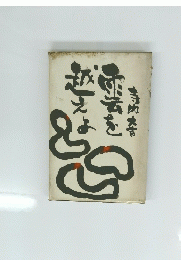 雲を
越えよ
寺内大吉